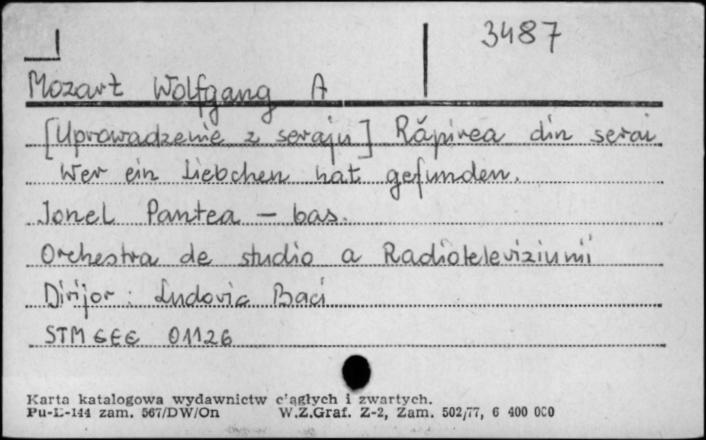 3487
Mozart Wolfgang A
[Uprowadzenie z seraju] Răpirea din serai
Wer ein Liebchen hat gefunden.
Ionel Pantea – bas.
Orchestra de studio a Radioteleviziunii
Dirijor: Ludovic Baci
STM ЄЄЄ 01126
Karta katalogowa wydawnictw c'ągłych i zwartych.
Pu-L-144 zam. 567/DW/On W.Z.Graf. Z-2, Zam. 502/77, 6 400 000